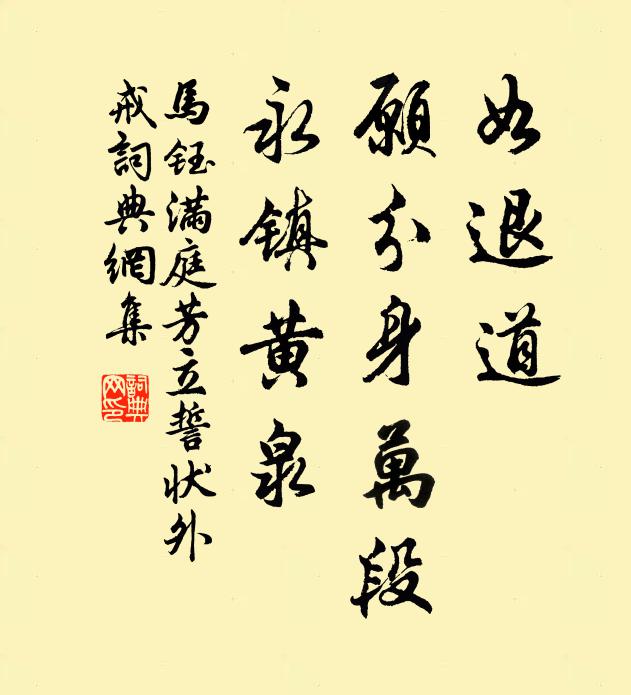 如退道
願分身萬段
永镇黄泉
馬鈺滿庭芳立誓状外
戒詞典網集
詞典网印